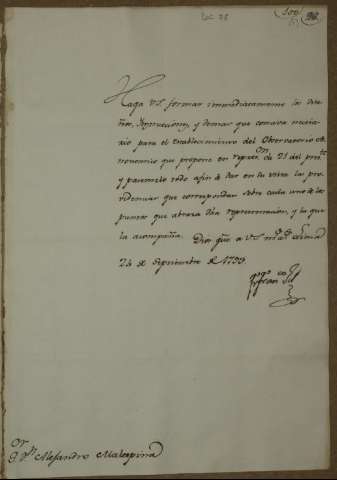 Doc 28
Haga V.S. formar inmediatamente los dise
ños, Ynstrucciones, y demas que conceva necesa
rio para el establecimiento del Observatorio As
tronomico que propone en repres.on de 21 del pres.te
y pasarmelo todo afin de dar en su vista las pro
videncias que correspondan sobre cada uno de los
puntos que abraza dha representacion, y la que
la acompaña. Dios gũe a V.S. m.s a.s Lima
24 de Septiembre de 1793
S.or D.n Alejandro Malaspina